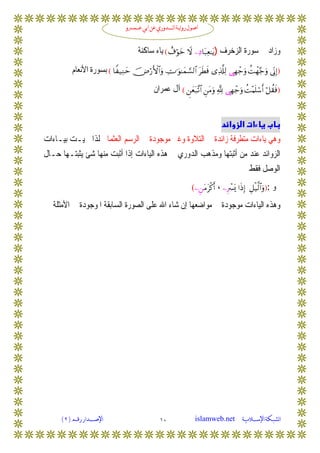 أصول رواية الدوري عن أبي عمرو
وزاد سورة الزخرف (يَـٰعِبَادِ لَا خَوْفٌ) ياء ساكنة
(إِنِّي وَجَّهْتُ وَجْهِيَ لِلَّذِي فَطَرَ ٱلسَّمَـٰوَٰتِ وَٱلْأَرْضَ حَنِيفًا) بسورة الأنعام
(فَقُلْ أَسْلَمْتُ وَجْهِيَ لِلَّهِ وَمَنِ ٱتَّبَعَنِ) آل عمران
باب ياءات الزوائد
وهي ياءات متطرفة زائدة التلاوة وغ موجودة الرسم العثما لذا يـت بيـاءات
الزوائد عند من أثبتها ومذهب الدوري هذه الياءات إذا أثبت منها شئ يثبتـها حـال
الوصل فقط
و :(وَٱلَّيْلِ إِذَا يَسْرِ - ، أَكْرَمَنِ -)
وهذه الياءات موجودة مواضعها إن شاء الله على الصورة السابقة ا وجودة الأمثلة
الشبكة الإسلامية islamweb.net
١٠
الإصدار رقم (٢)